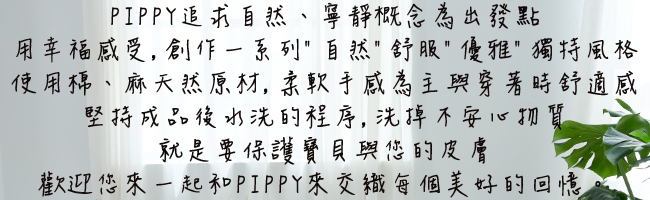 PIPPY追求自然、寧靜概念為出發點
用幸福感受,創作一系列"自然"舒服"優雅"獨特風格
使用棉、麻天然原材,柔軟手感為主與穿著時舒適感
堅持成品後水洗的程序,洗掉不安心物質
就是要保護寶貝與您的皮膚
歡迎您來一起和PIPPY來交織每個美好的回憶。